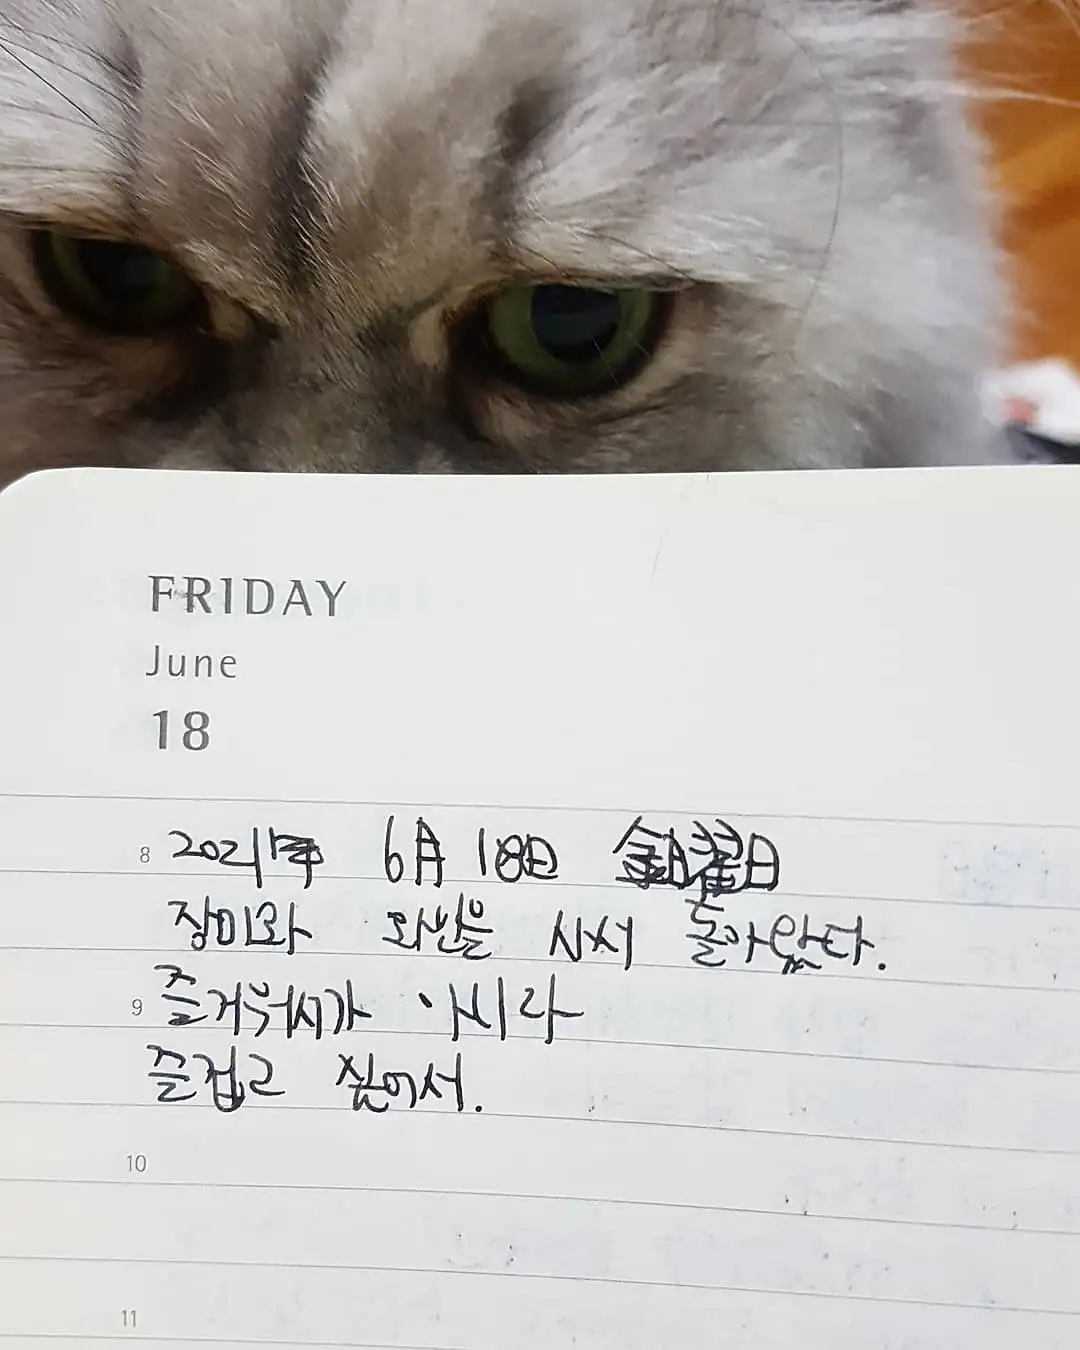 FRIDAY
June
18
8 2021年 6月 18日 金曜日
장미와 화분을 사서 돌아왔다.
9 즐거워서가 아니라
즐겁고 싶어서.
10
11